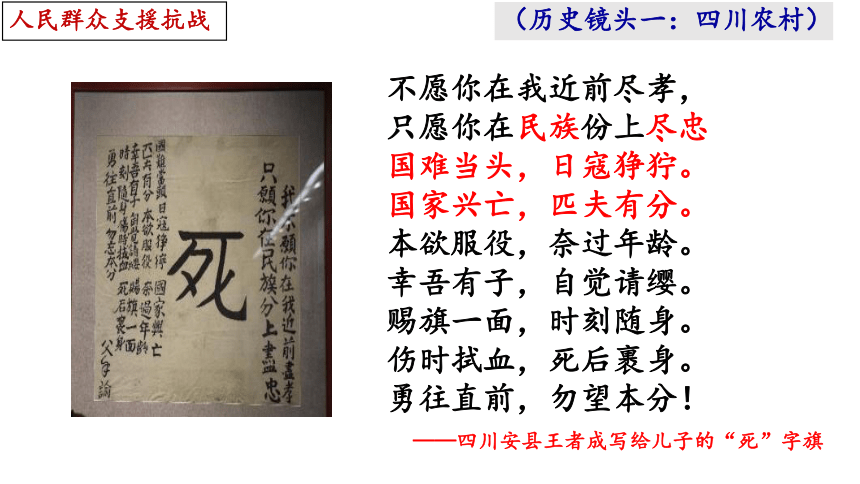 人民群众支援抗战
（历史镜头一：四川农村）
我不願你在我近前盡孝
只願你在民族分上盡忠
死
國難當頭 日寇猙獰 國家興亡
匹夫有分 本欲服役 奈過年齡
幸吾有子 自覺請纓 賜旗一面
時刻隨身 傷時拭血 死后裹身
勇往直前 勿忘本分
父手諭
不愿你在我近前尽孝，
只愿你在民族份上尽忠
国难当头，日寇狰狞。
国家兴亡，匹夫有分。
本欲服役，奈过年龄。
幸吾有子，自觉请缨。
赐旗一面，时刻随身。
伤时拭血，死后裹身。
勇往直前，勿望本分！
——四川安县王者成写给儿子的“死”字旗